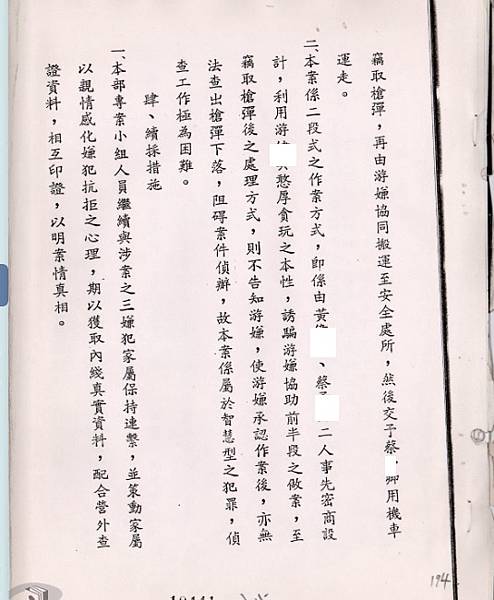 竊取槍彈，再由游嫌協同搬運至安全處所，然後交予蔡 卿用機車
運走。
二、本案係二段式之作案方式，即係由黃 、蔡 二人事先密商設
計，利用游 憨厚貪玩之本性，誘騙游嫌協助前半段之做案，至
竊取槍彈後之處理方式，則不告知游嫌，使游嫌承認作案後，亦無
法查出槍彈下落，阻碍案件偵辦，故本案係屬於智慧型之犯罪，偵
查工作極為困難。
肆、續採措施
一、本部專案小組人員繼續與涉案之三嫌犯家屬保持連繫，並策動家屬
以親情感化嫌犯抗拒之心理，期以獲取內綫真實資料，配合營外查
證資料，相互印證，以明案情真相。
194